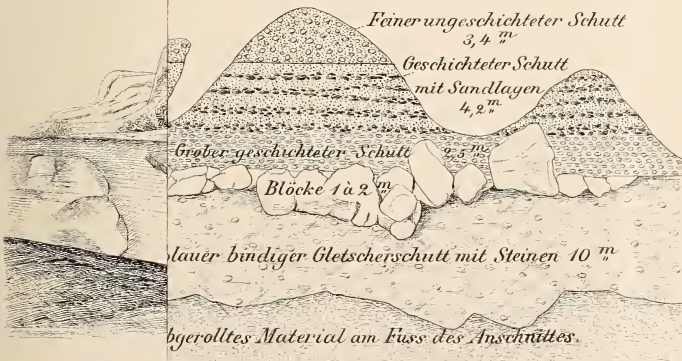 Feiner ungeschichteter Schutt
3,4 m
Geschichteter Schutt
mit Sandlagen
4,2 m
Grober geschichteter Schutt 2,5 m
Blöcke 1 à 2 m
lauer bindiger Gletscherschutt mit Steinen 10 m
bgerolltes Material am Fuss des Anschnittes.